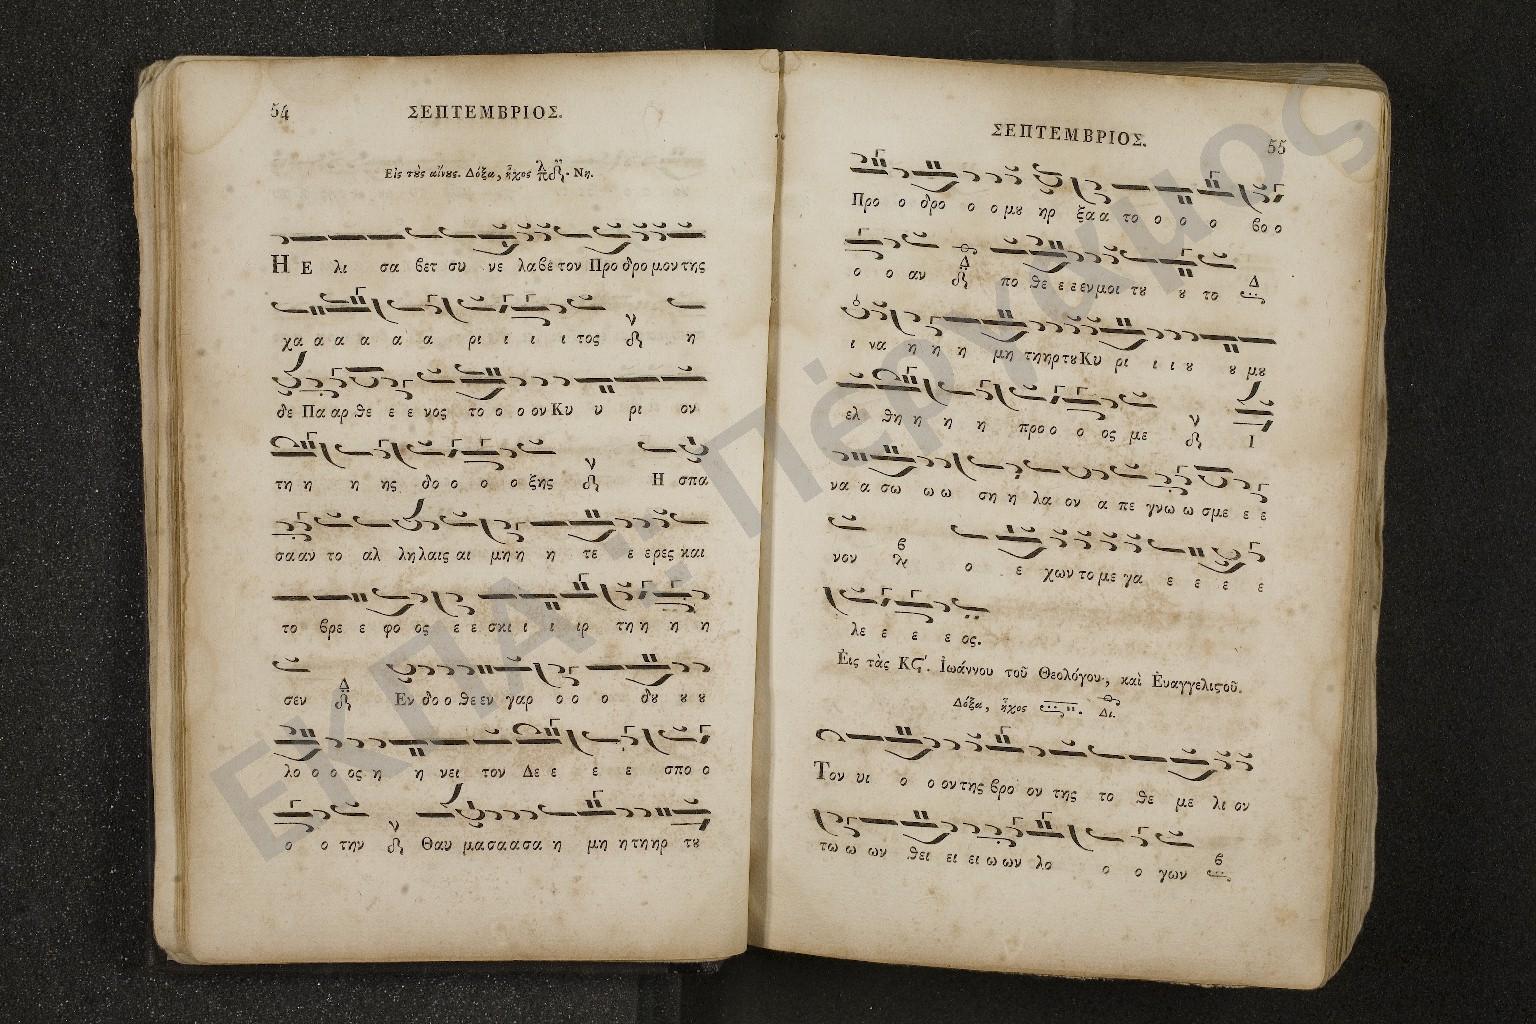 54
ΣΕΠΤΕΜΒΡΙΟΣ.
Εἰς τοὺς αἴνους. Δόξα, ἦχος Νη.
Η Ε λι σα βετ συ νε λαβε τον Προ δρο μον της
χα α α α α α ρι ι ι ι τος η
δε Πα αρ θε ε ε νος το ο ο ον Κυ υ ρι ον
τη η η ης δο ο ο ο ξης Η σπα
σα αν το αλ λη λαις αι μη η η τε ε ε ρες και
το βρε ε φο ος ε ε σκι ι ι ιρ τη η η η
σεν Εν δο ο θε εν γαρ ο ο ο δου ου ου
λο ο ο ος η η νει τον Δε ε ε ε σπο ο
ο ο την Θαυ μα σα α σα η μη η τη ηρ του
ΣΕΠΤΕΜΒΡΙΟΣ.
55
Προ ο δρο ο ο μου ηρ ξα α το ο ο ο βο ο
ο ο αν πο θε ε ε εν μοι του ου το
ι να η η η μη τη ηρ του Κυ ρι ι ι ου ου μου
ελ θη η η η προ ο ο ος με Ι
να α σω ω ω ση η λα ον α πε γνω ω σμε ε ε
νον ο ε χων το με γα ε ε ε ε
λε ε ε ε ος.
Εἰς τὰς Κϛ΄. Ἰωάννου τοῦ Θεολόγου, καὶ Εὐαγγελιϛοῦ.
Δόξα, ἦχος Δι.
Τον υι ο ο ον της βρο ον της το θε με λι ον
τω ω ων θει ει ει ω ων λο ο ο γων